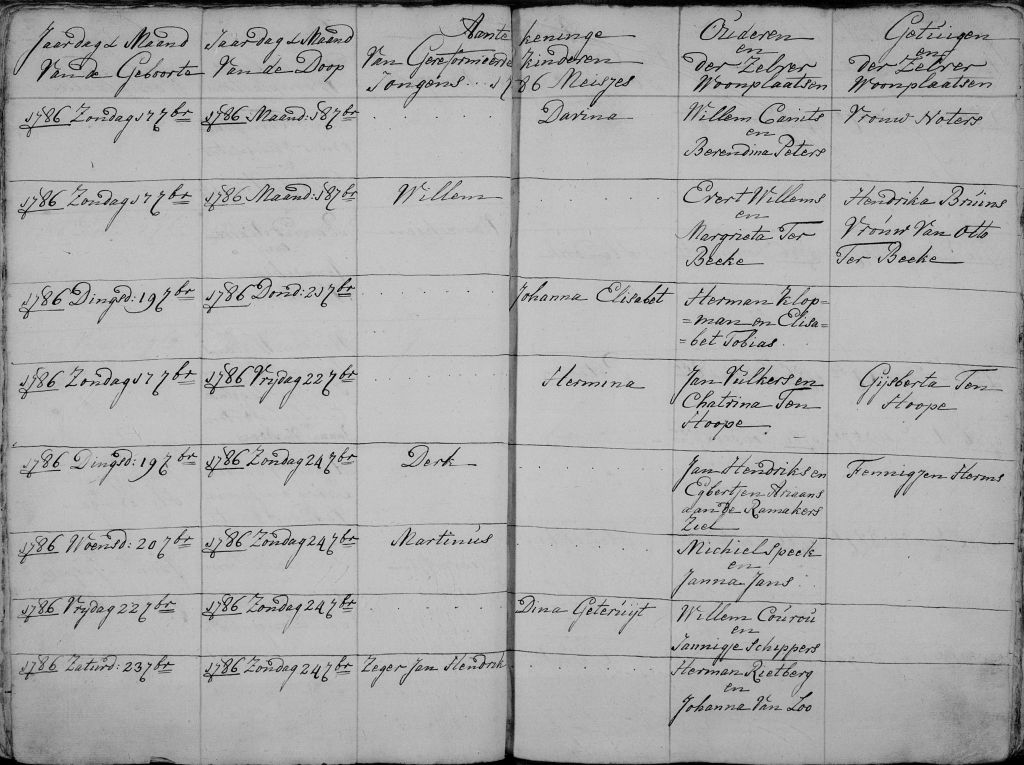 Jaardag & Maand Van de Geboorte
Jaardag & Maand Van de Doop
Aantekeninge Van Gereformeerde Kinderen
Jongens .. 1786 Meisjes
Ouderen en der Zelver Woonplaatsen
Getuigen en der Zelver Woonplaatsen
1786 Zondag 17 7br 1786 Maand: 18 7br Darina Willem Camts Vrouw Noters
en
Berendina Peters
1786 Zondag 17 7br 1786 Maand: 18 7br Willem Evert Willems Hendrika Bruins
en Vrouw Van Otto
Margrieta Ter Ter Beeke
Beeke
1786 Dingsd: 19 7br 1786 Dond: 21 7br Johanna Elisabet Herman Klop=
=man en Elisa=
=bet Tobias
1786 Zondag 17 7br 1786 Vrydag 22 7br Hermina Jan Vulkers en Gijsberta Ten
Chatrina Ten Hoope
Hoope
1786 Dingsd: 19 7br 1786 Zondag 24 7br Derk Jan Hendriks en Fennigjen Herms
Egbertjen Ariaans
aan de Ramakers
Ziel
1786 Woensd: 20 7br 1786 Zondag 24 7br Martinus Michiel Speek
en
Janna Jans
1786 Vrydag 22 7br 1786 Zondag 24 7br Dina Geteruijt Willem Courou
en
Jannigje Schippers
1786 Zaturd: 23 7br 1786 Zondag 24 7br Zeger Jan Hendrik Herman Rietberg
en
Johanna Van Loo